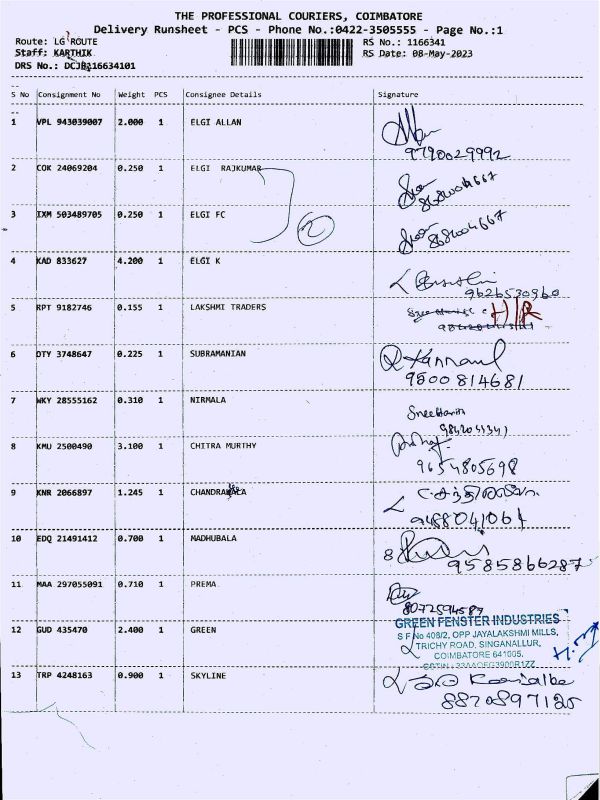 THE PROFESSIONAL COURIERS, COIMBATORE
Delivery Runsheet - PCS - Phone No.:0422-3505555 - Page No.:1
Route: LG ROUTE RS No.: 1166341
Staff: KARTHIK RS Date: 08-May-2023
DRS No.: 16634101
S No Consignment No Weight PCS Consignee Details Signature
1 VPL 943039007 2.000 1 ELGI ALLAN
9790029992
2 COK 24069204 0.250 1 ELGI RAJKUMAR
8668004667
3 IXM 503489705 0.250 1 ELGI FC
2
8668004667
4 KAD 833627 4.200 1 ELGI K
9626530960
5 RPT 9182746 0.155 1 LAKSHMI TRADERS
6 OTY 3748647 0.225 1 SUBRAMANIAN
9500814681
7 WKY 28555162 0.310 1 NIRMALA
Sreeharih
9842011341
8 KMU 2500490 3.100 1 CHITRA MURTHY
9654805698
9 KNR 2066897 1.245 1
9488041061
10 EDQ 21491412 0.700 1 MADHUBALA
9585866287
11 MAA 297055091 0.710 1 PREMA
8072594587
12 GUD 435470 2.400 1 GREEN
GREEN FENSTER INDUSTRIES
S F No 408/2, OPP JAYALAKSHMI MILLS,
TRICHY ROAD, SINGANALLUR,
COIMBATORE 641005.
13 TRP 4248163 0.900 1 SKYLINE
8870897125